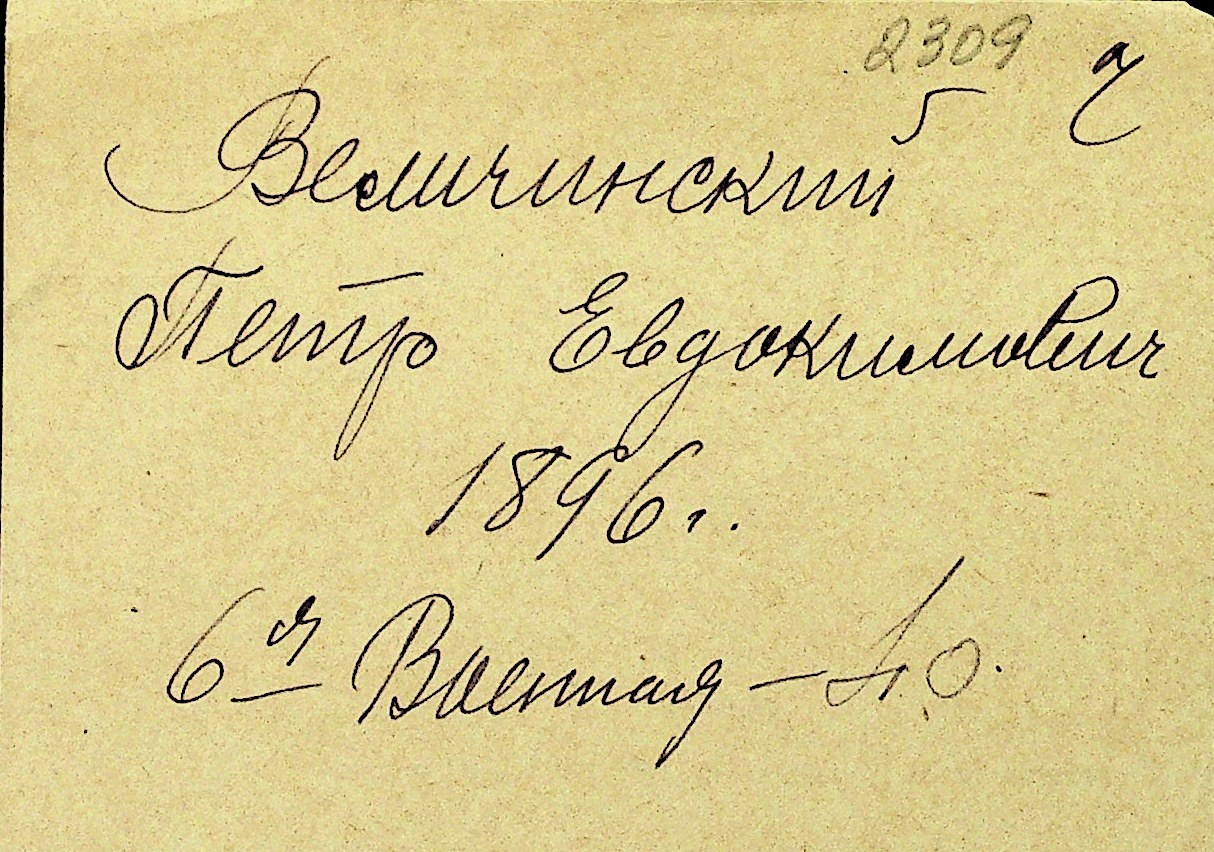 2309
Величинский
Петр Евдокимович
1896 г.
6я Военная – 40.